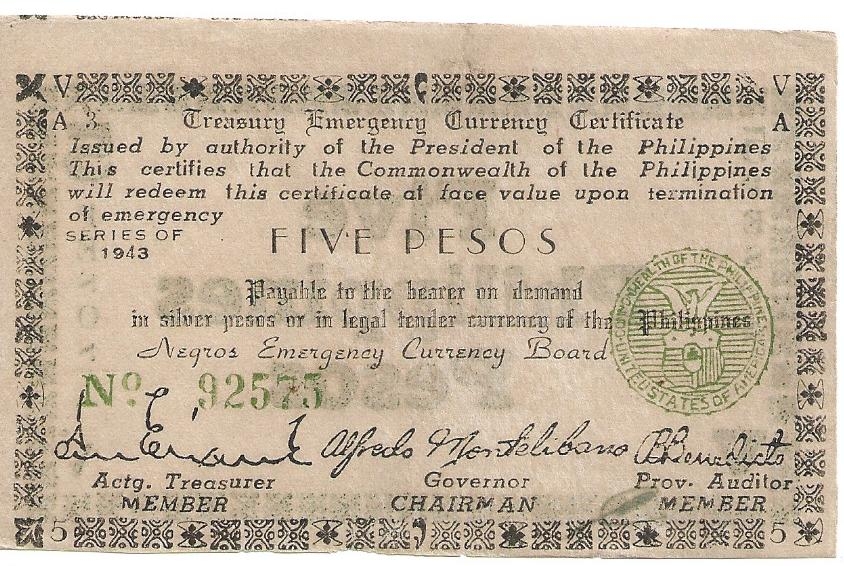 V V
A 3 Treasury Emergency Currency Certificate A
Issued by authority of the President of the Philippines
This certifies that the Commonwealth of the Philippines
will redeem this certificate at face value upon termination
of emergency
SERIES OF
1943
FIVE PESOS
Payable to the bearer on demand
in silver pesos or in legal tender currency of the Philippines
Negros Emergency Currency Board
COMMONWEALTH OF THE PHILIPPINES
UNITED STATES OF AMERICA
Nº 92575
Alfredo Montelibano
Actg. Treasurer Governor Prov. Auditor
MEMBER CHAIRMAN MEMBER
5 5